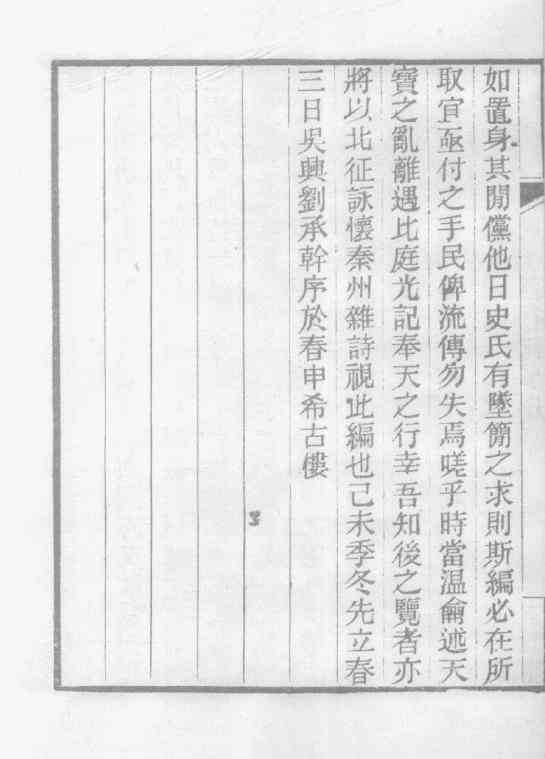 如置身其閒儻他日史氏有墜簡之求則斯編必在所
取官亟付之手民俾流傳勿失焉嗟乎時當温侖述天
寶之亂離遇比庭光記奉天之行幸吾知後之覽者亦
將以北征詠懷秦州雜詩視此編也己未季冬先立春
三日吳興劉承幹序於春申希古樓